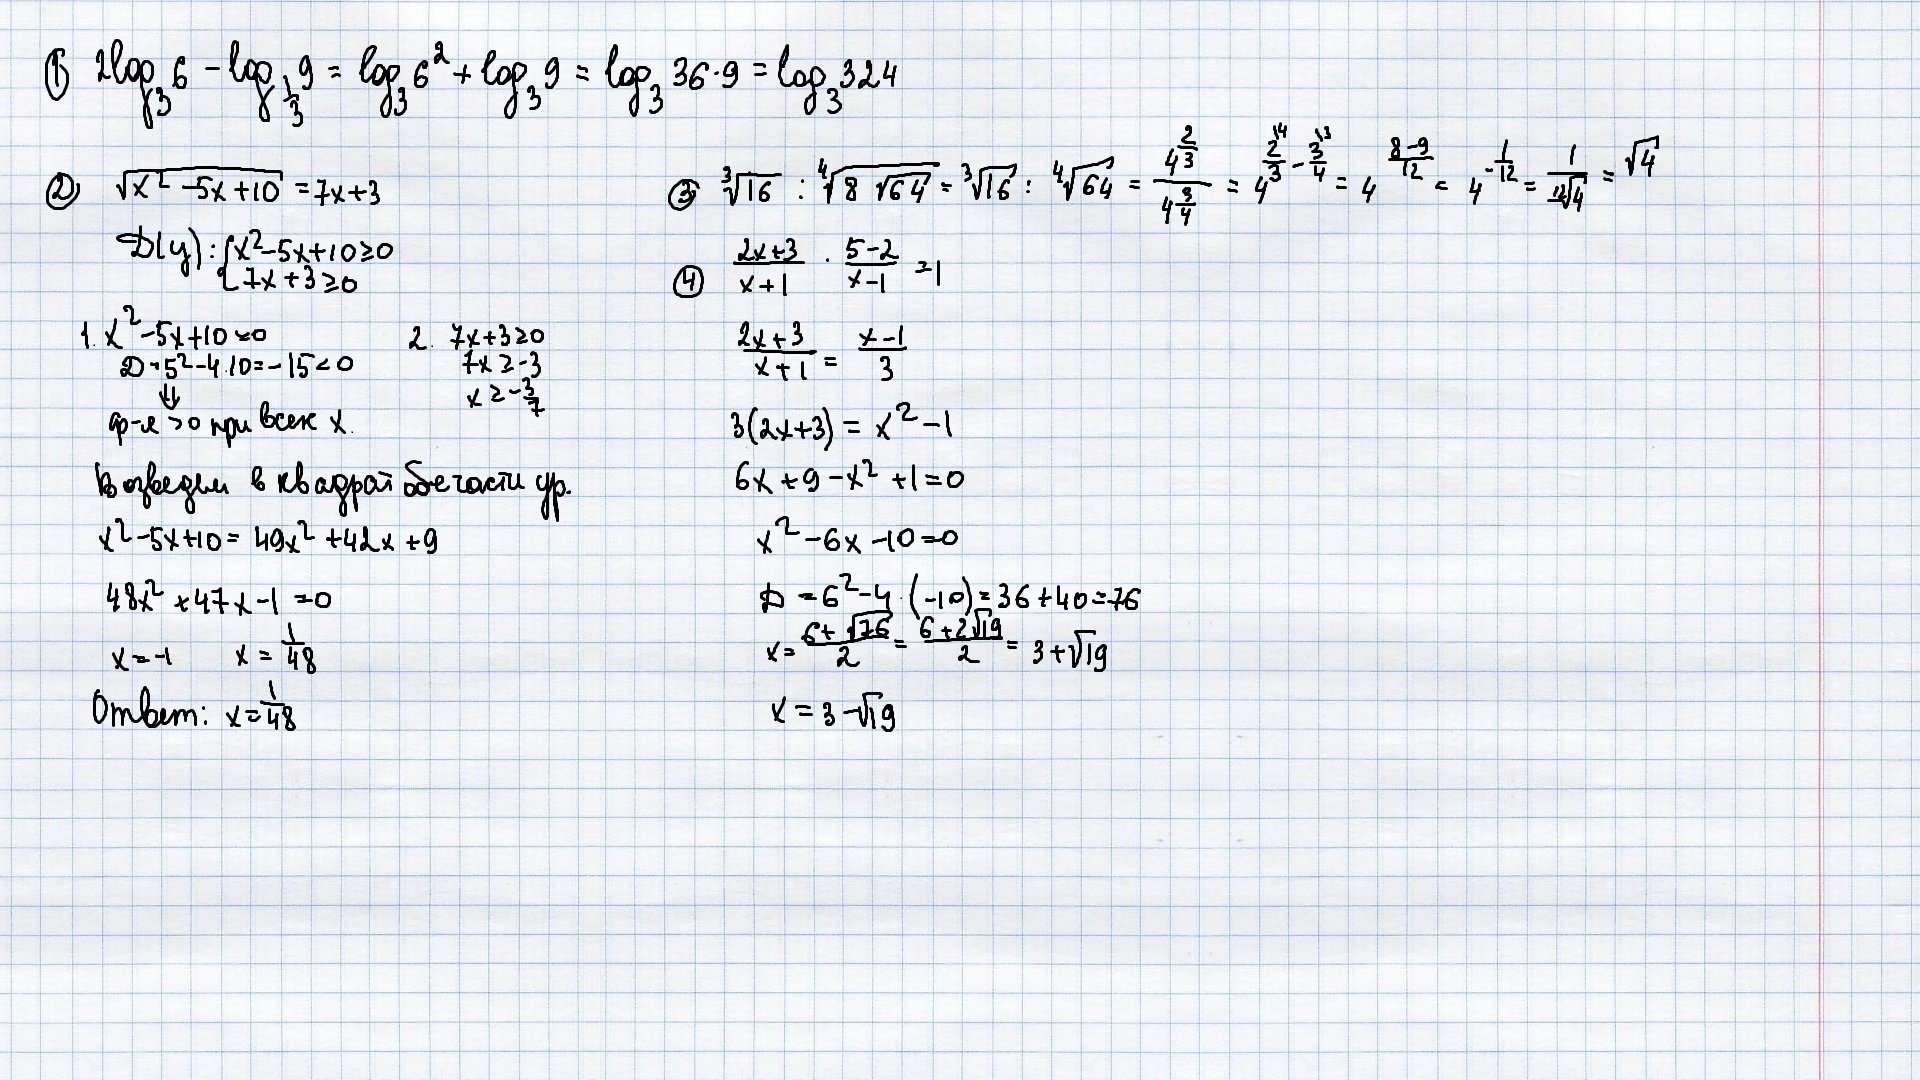 ① 2log₃6 - log_{1/3}9 = log₃6² + log₃9 = log₃36·9 = log₃324
② √(x² - 5x + 10) = 7x + 3
D(y): { x² - 5x + 10 ≥ 0
7x + 3 ≥ 0
1. x² - 5x + 10 = 0
D = 5² - 4·10 = -15 < 0
⇓
ф-я >0 при всех x.
2. 7x + 3 ≥ 0
7x ≥ -3
x ≥ -3/7
Возведем в квадрат обе части ур.
x² - 5x + 10 = 49x² + 42x + 9
48x² + 47x - 1 = 0
x = -1 x = 1/48
Ответ: x = 1/48
③ ∛16 : ∜(8√64) = ∛16 : ∜64 = 4^{2/3} / 4^{3/4} = 4^{2/3\4 - 3/4\3} = 4^{(8-9)/12} = 4^{-1/12} = 1/¹²√4 = √4
④ (2x+3)/(x+1) · (5-2)/(x-1) = 1
(2x+3)/(x+1) = (x-1)/3
3(2x+3) = x² - 1
6x + 9 - x² + 1 = 0
x² - 6x - 10 = 0
D = 6² - 4·(-10) = 36 + 40 = 76
x = (6+√76)/2 = (6+2√19)/2 = 3+√19
x = 3 - √19